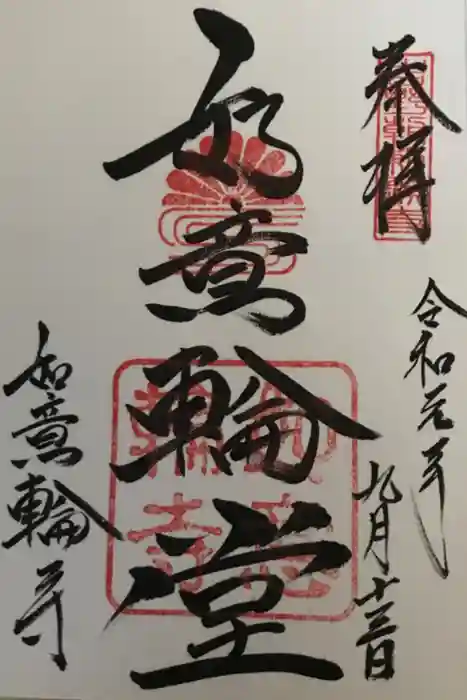 奉拝
令和元年
九月十三日
如意輪堂
如意輪寺